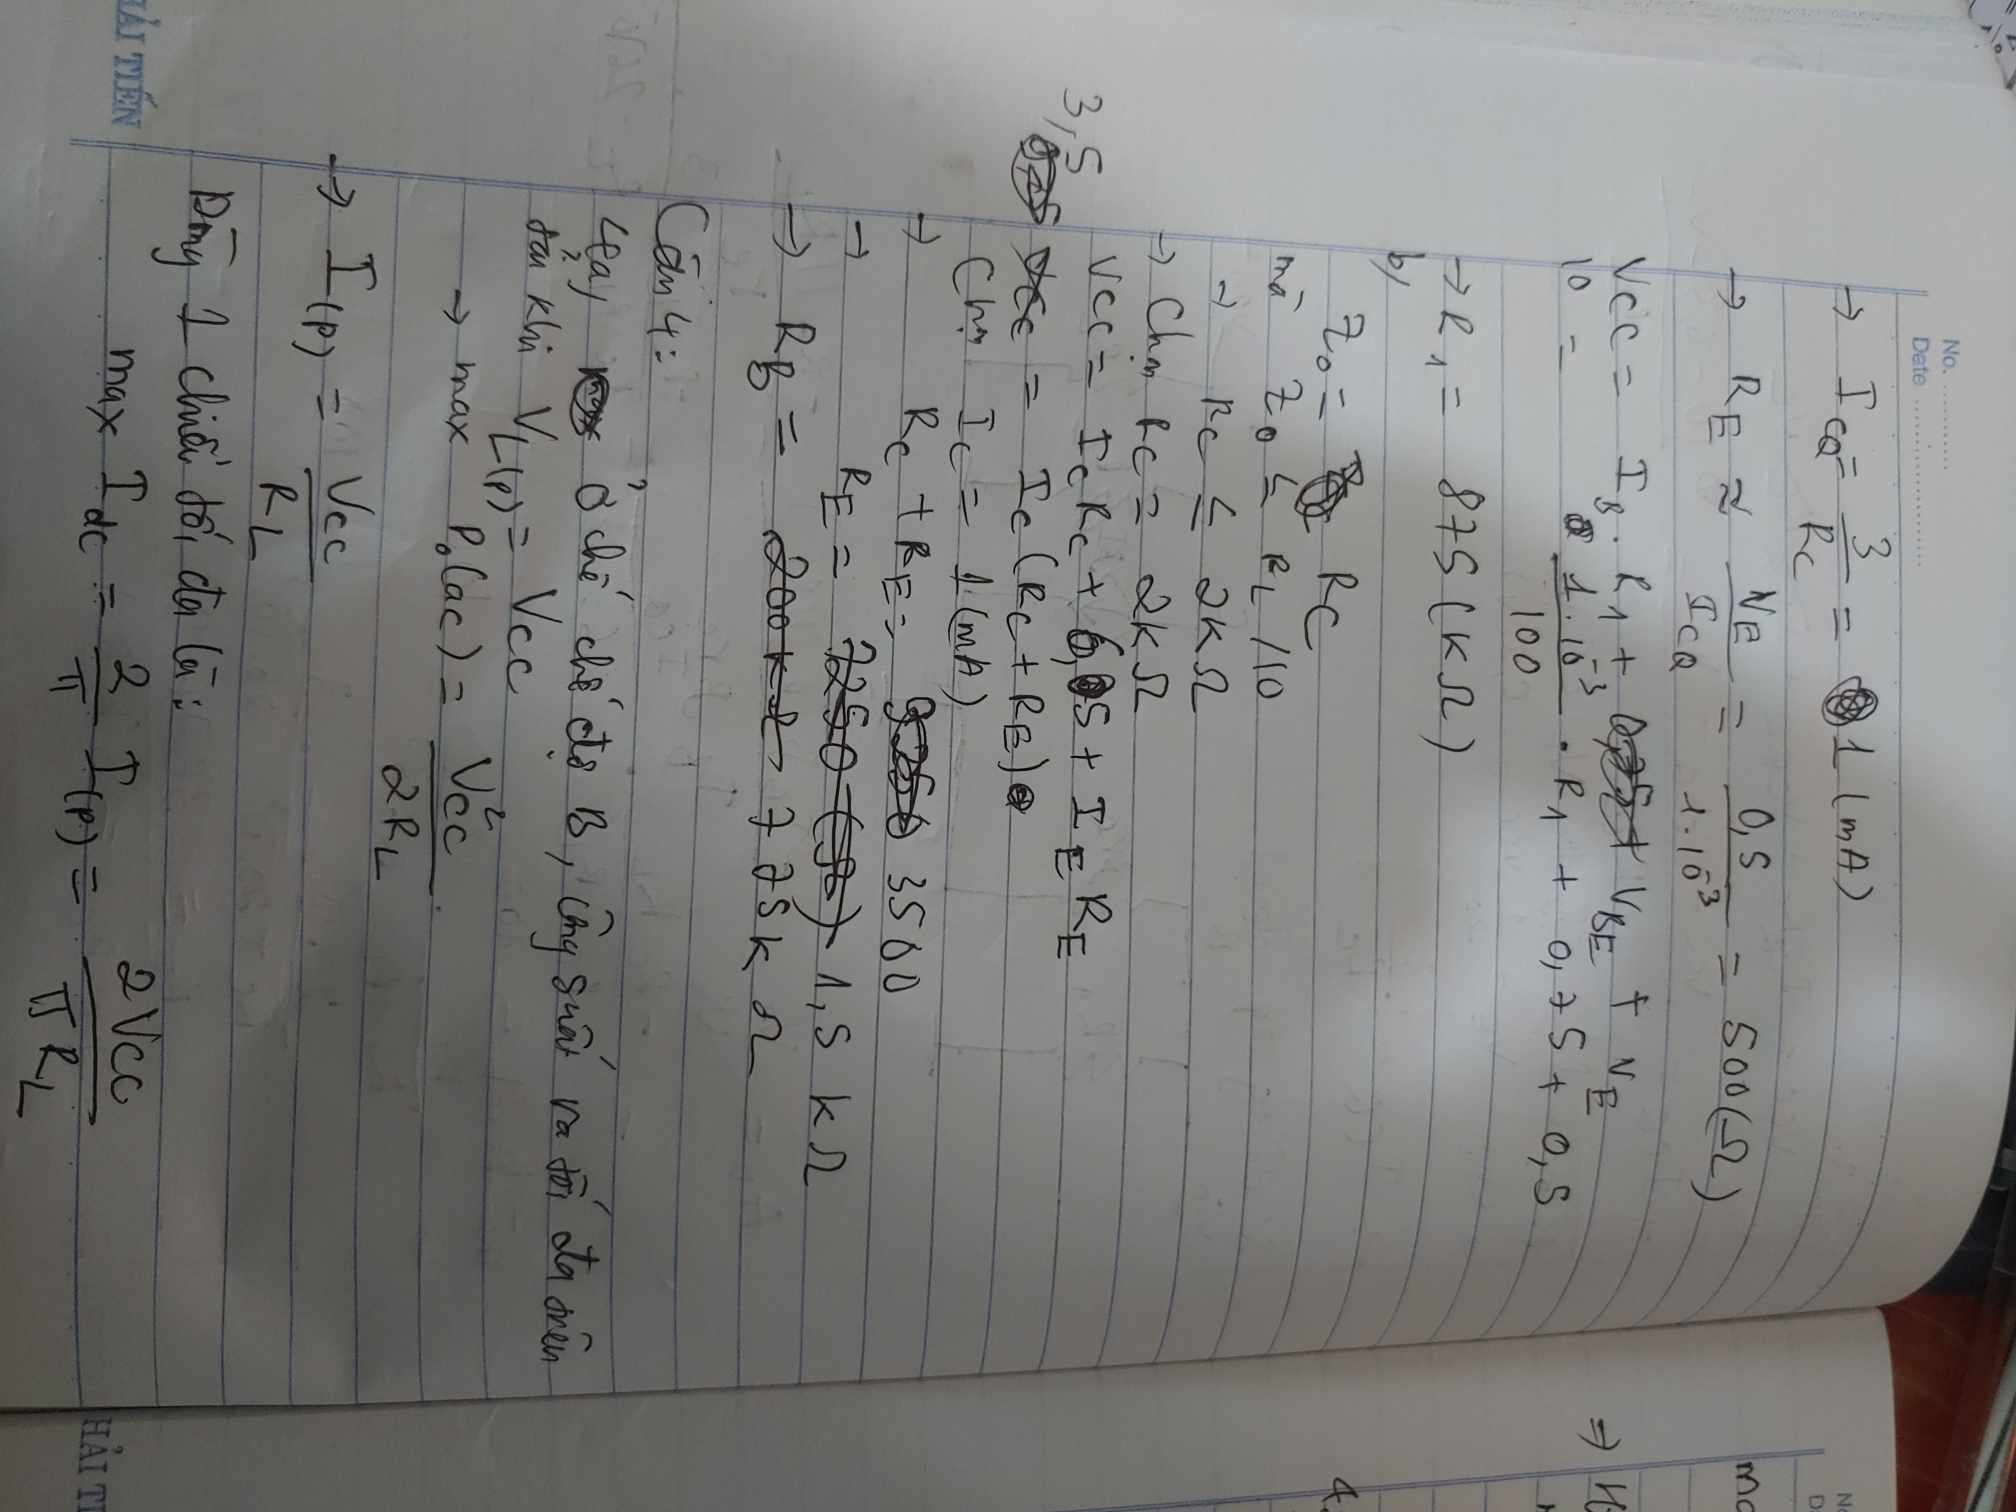 No. ............
Date ............
→ I_CQ = 3/R_C = 1 (mA)
→ R_E ≈ V_E/I_CQ = 0,5/1.10^-3 = 500(Ω)
Vcc = I_B . R1 + V_BE + V_E
10 = 1.10^-3/100 . R1 + 0,75 + 0,5
→ R1 = 875 (kΩ)
b,
Z0 = Rc
mà Z0 ≤ R_L/10
→ Rc ≤ 2kΩ
→ Chọn Rc = 2kΩ
Vcc = Ic Rc + 6,5 + I_E R_E
3,5 = Ic (Rc + R_E)
Chọn Ic = 1 (mA)
→ Rc + R_E = 3500
→ R_E = 1,5 kΩ
→ R_B = 775 k Ω
Câu 4:
Lớp ở chế chế độ B, công suất ra tối đa nên
tải khi V_L(p) = Vcc
→ max P0(ac) = Vcc²/2R_L
→ I(p) = Vcc/R_L
Dòng 1 chiều tối đa là:
max I_dc = 2/π I(p) = 2Vcc/πR_L
HẢI TIẾN
HẢI TI